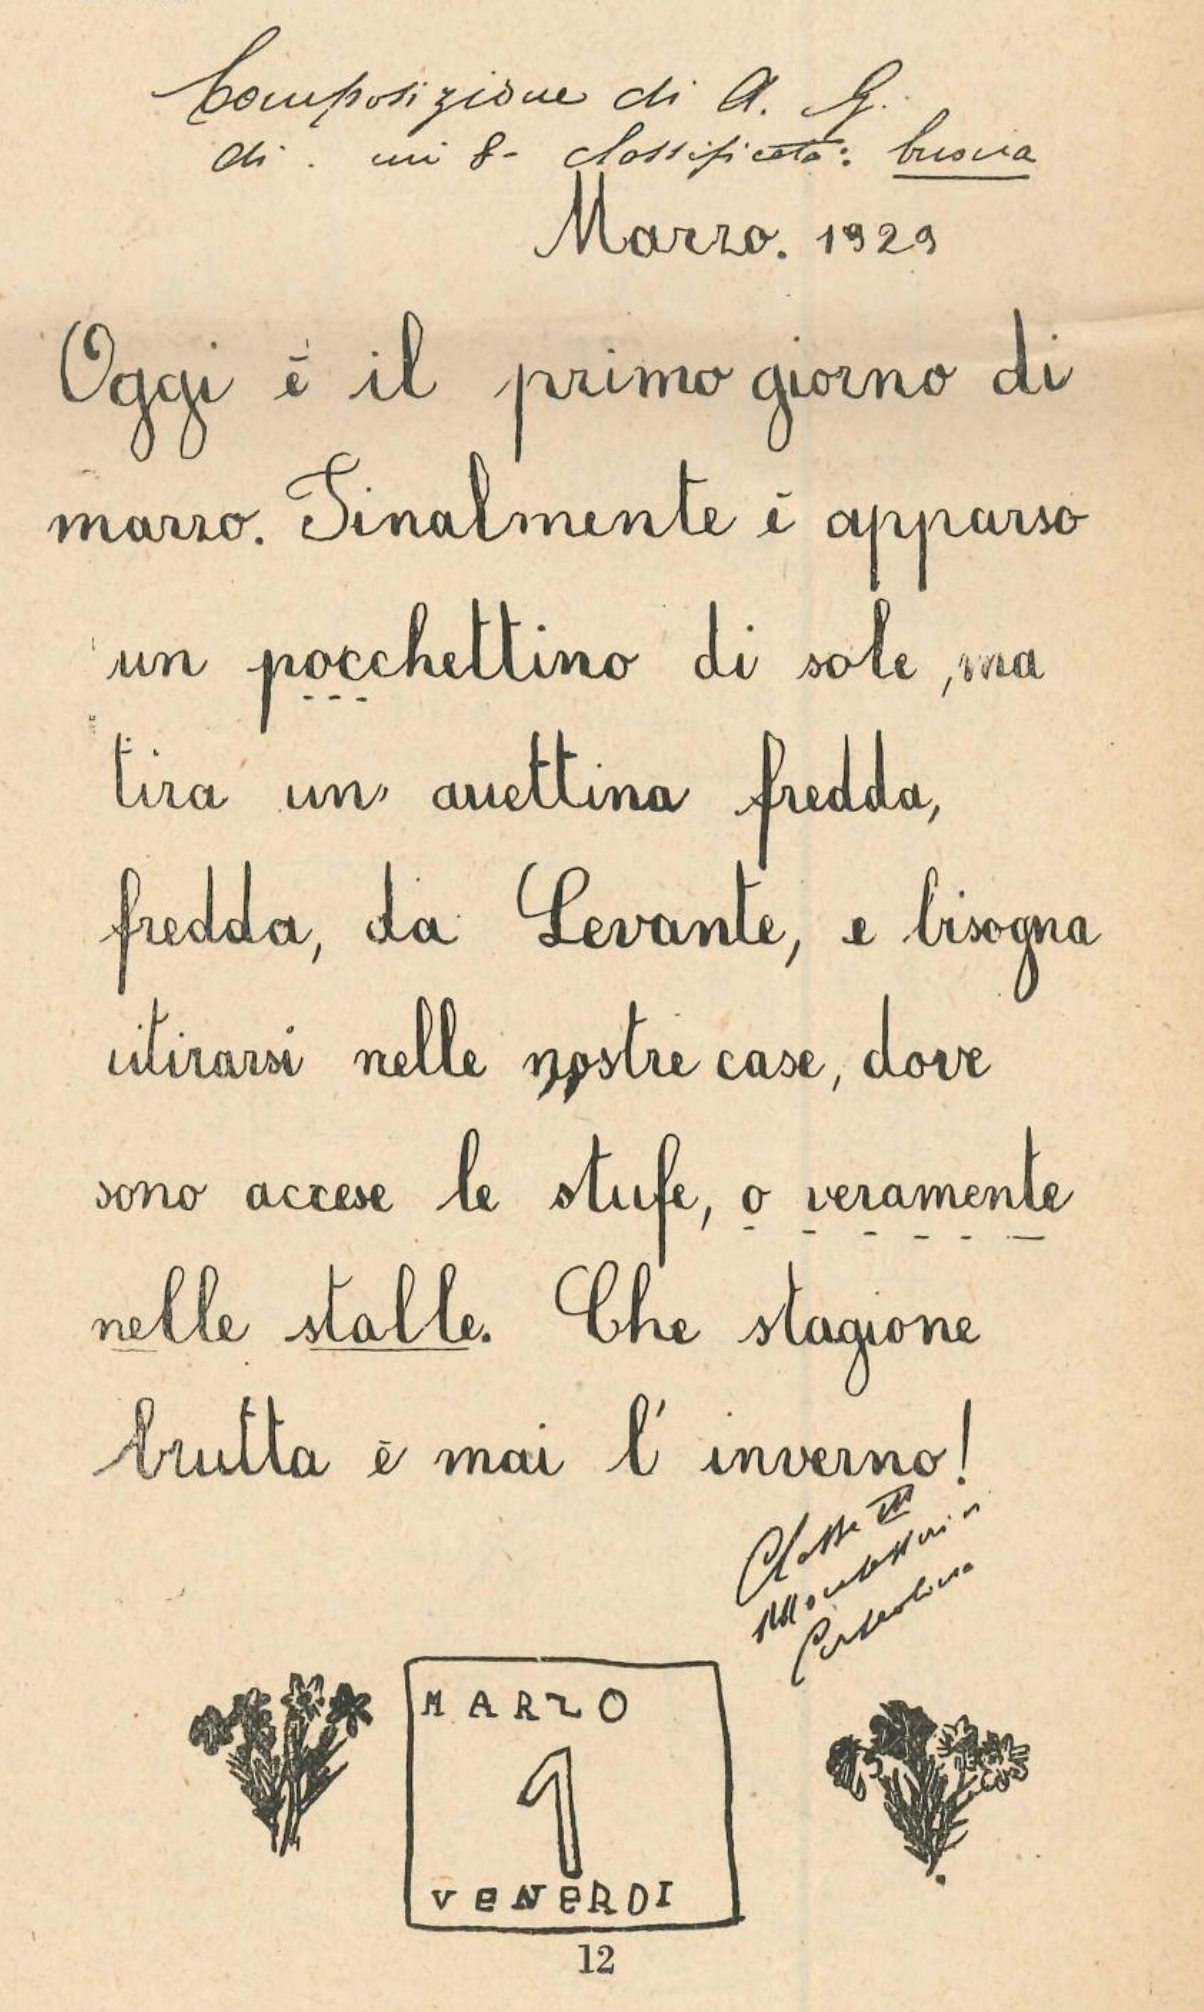 Composizione di A. G.
di . anni 8 - classificata: buona
Marzo. 1929
Oggi è il primo giorno di
marzo. Finalmente è apparso
un pocchettino di sole, ma
tira un' auettina fredda,
fredda, da Levante, e bisogna
ritirarsi nelle nostre case, dove
sono accese le stufe, o veramente
nelle stalle. Che stagione
brutta è mai l'inverno!
Classe III
Montessoriana
MARZO
1
VENERDI
12